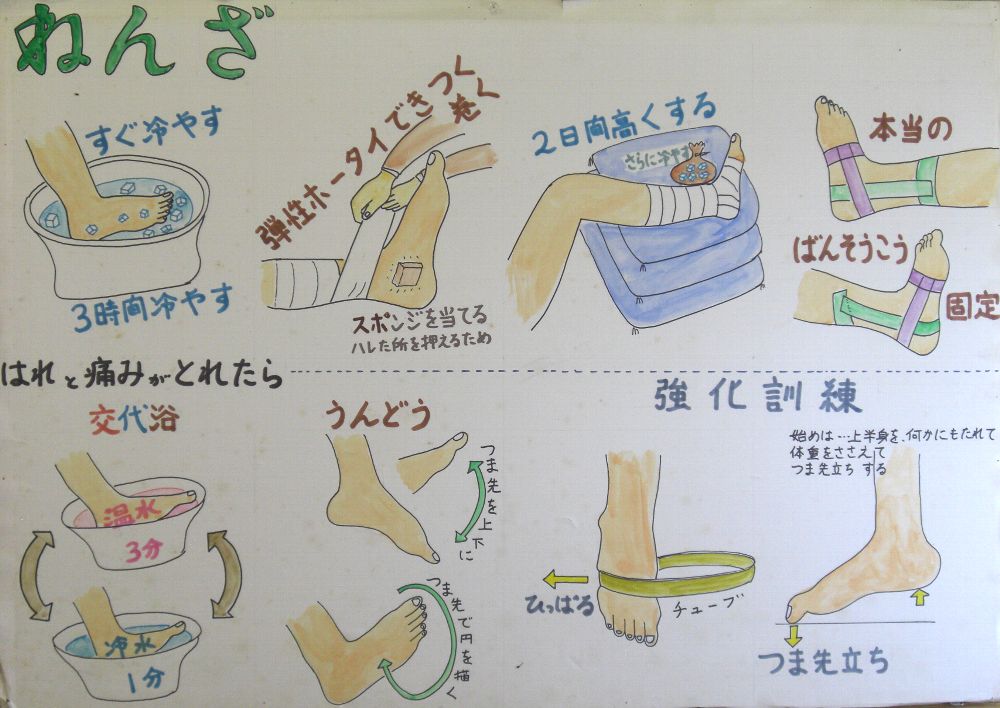 ねんざ
すぐ冷やす
3時間冷やす
弾性ホータイできつく
巻く
スポンジを当てる
ハレた所を押えるため
2日間高くする
さらに冷やす
本当の
ばんそうこう
固定
はれと痛みがとれたら
交代浴
温水
3分
冷水
1分
うんどう
つま先を上下に
つま先で円を描く
強化訓練
始めは…上半身を、何かにもたれて
体重をささえて
つま先立ちする
ひっぱる
チューブ
つま先立ち